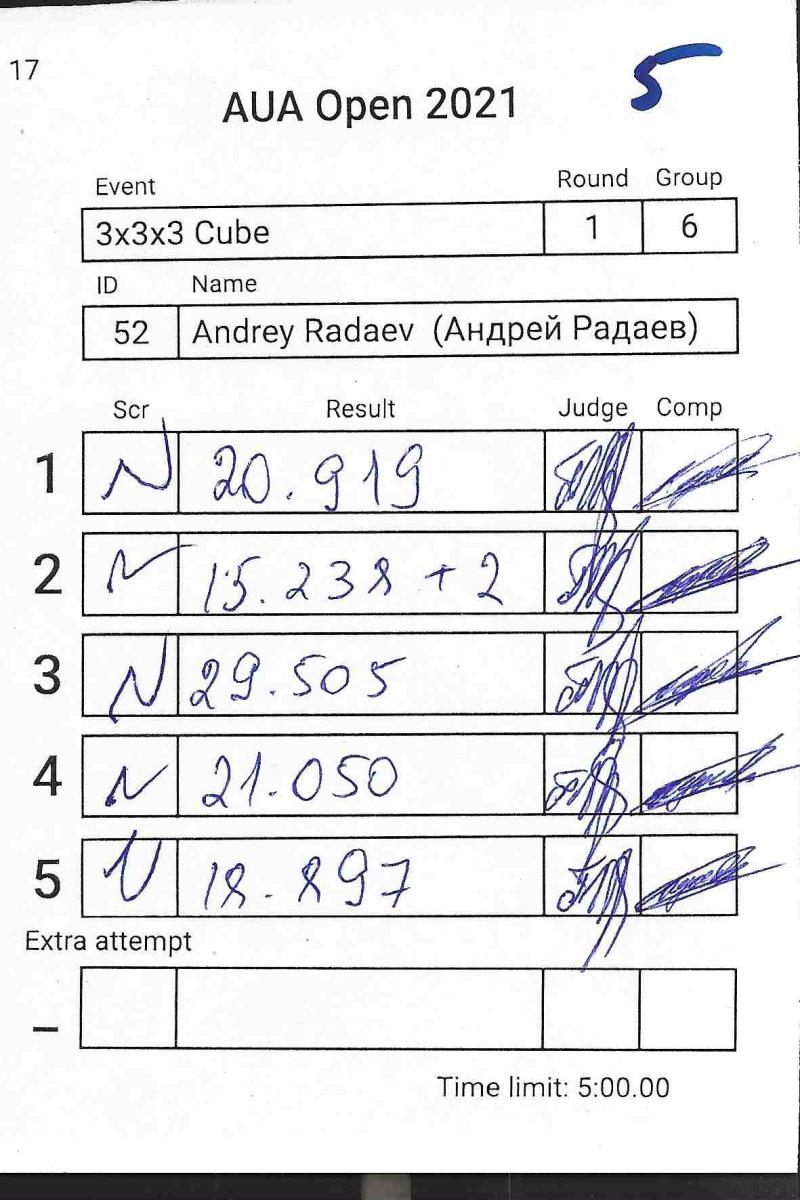 17
5
AUA Open 2021
Event Round Group
3x3x3 Cube 1 6
ID Name
52 Andrey Radaev (Андрей Радаев)
Scr Result Judge Comp
1 20.919
2 15.238 + 2
3 29.505
4 21.050
5 18.897
Extra attempt
–
Time limit: 5:00.00